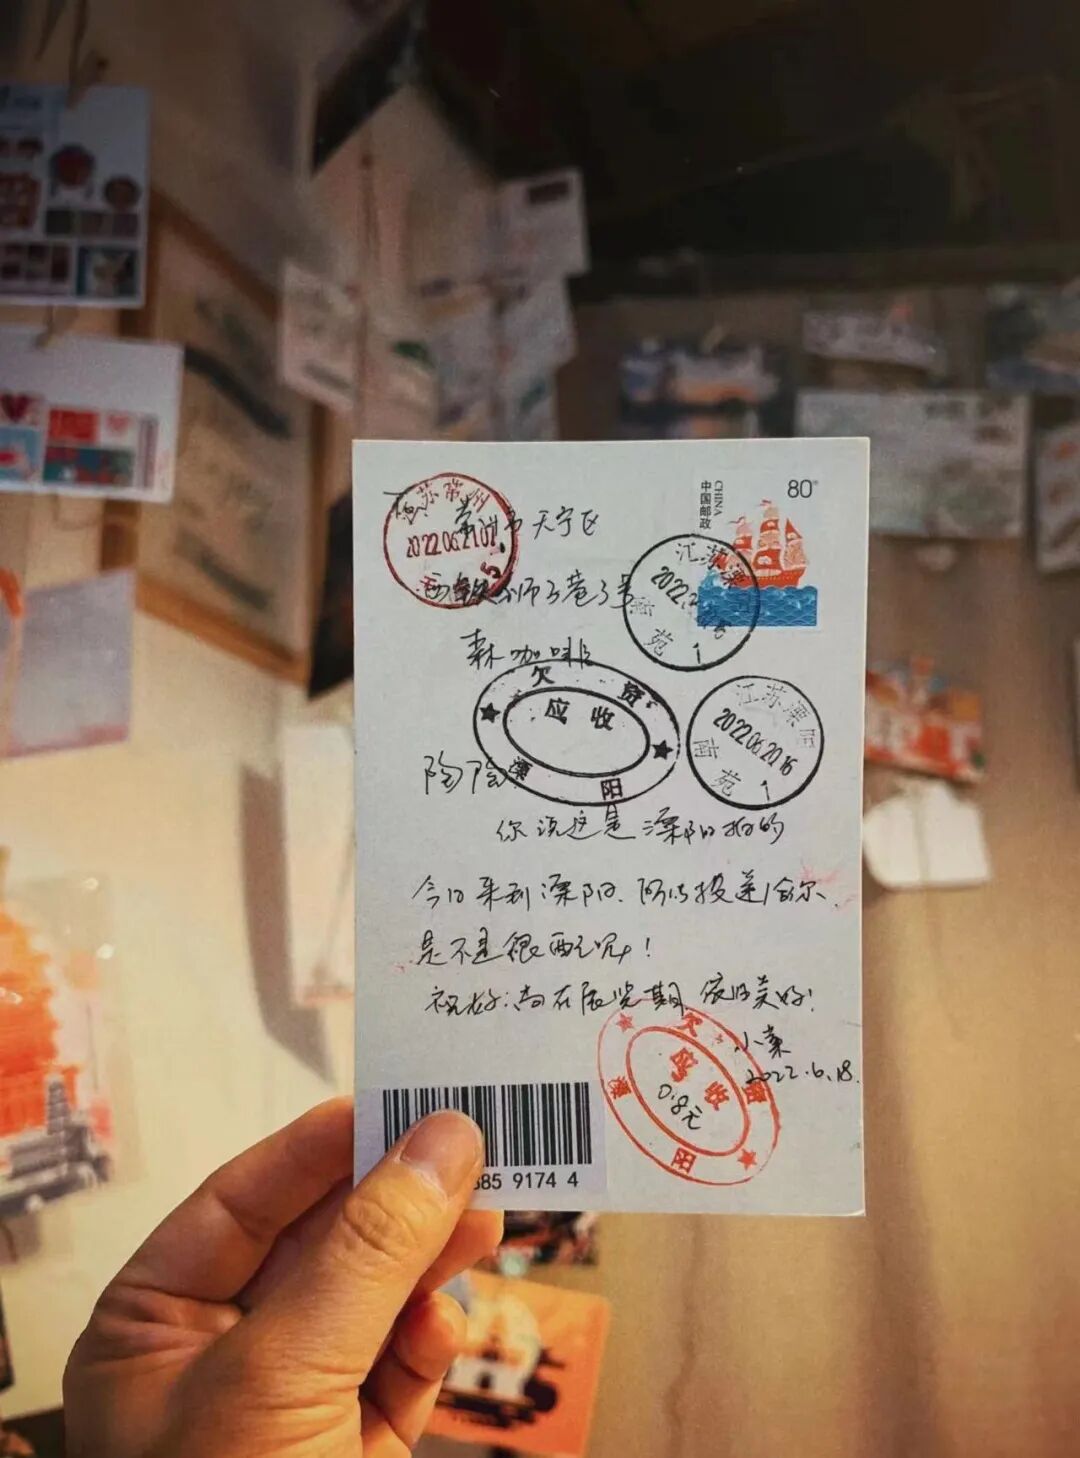 江苏常州
2022.06.21.07
常州市天宁区
中国邮政
CHINA
80分
江苏溧阳
南苑
1
森咖啡
欠资
应收
溧阳
江苏溧阳
2022.06.20.16
南苑
1
陶陶
你说这是溧阳拍的
今日来到溧阳.
投递给你.
是不是很配呢!
祝好! 依旧美好!
小菜
2022.6.18.
欠资
应收
0.8元
溧阳
385 9174 4